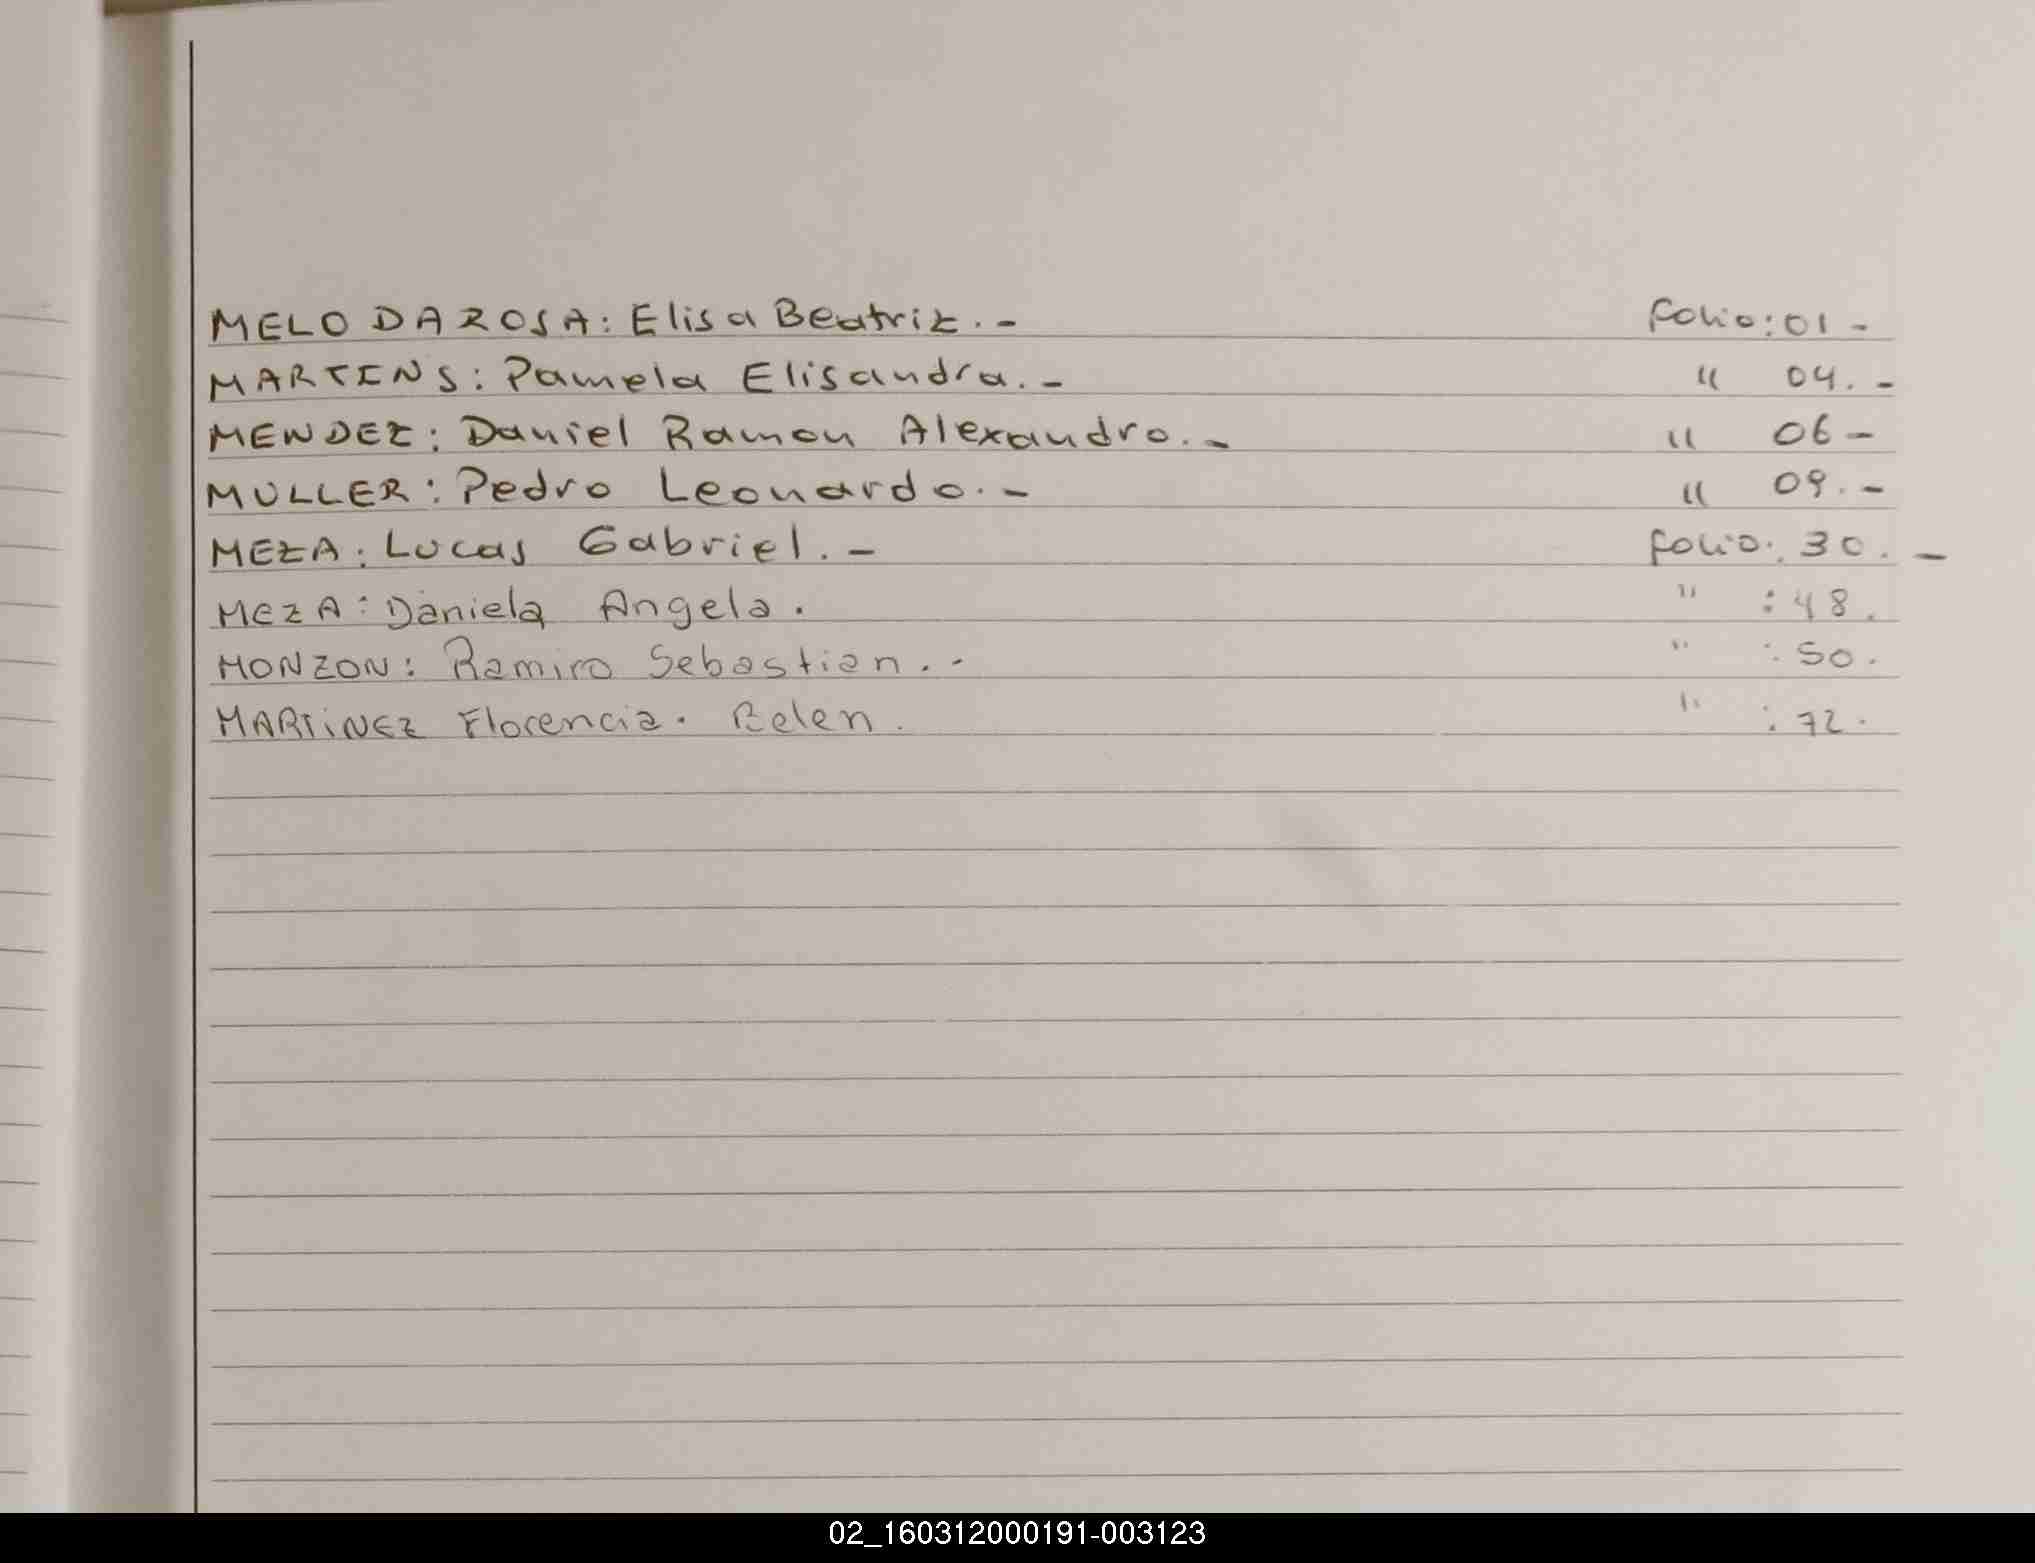 MELO DAROSA: Elisa Beatriz.- folio: 01-
MARTINS: Pamela Elisandra.- " 04.-
MENDEZ: Daniel Ramon Alexandro.- " 06-
MULLER: Pedro Leonardo.- " 09.-
MEZA: Lucas Gabriel.- folio: 30.-
MEZA: Daniela Angela. " : 48.
MONZON: Ramiro Sebastian.- " : 50.
MARTiNEZ Florencia. Belen. " : 72.
02_160312000191-003123